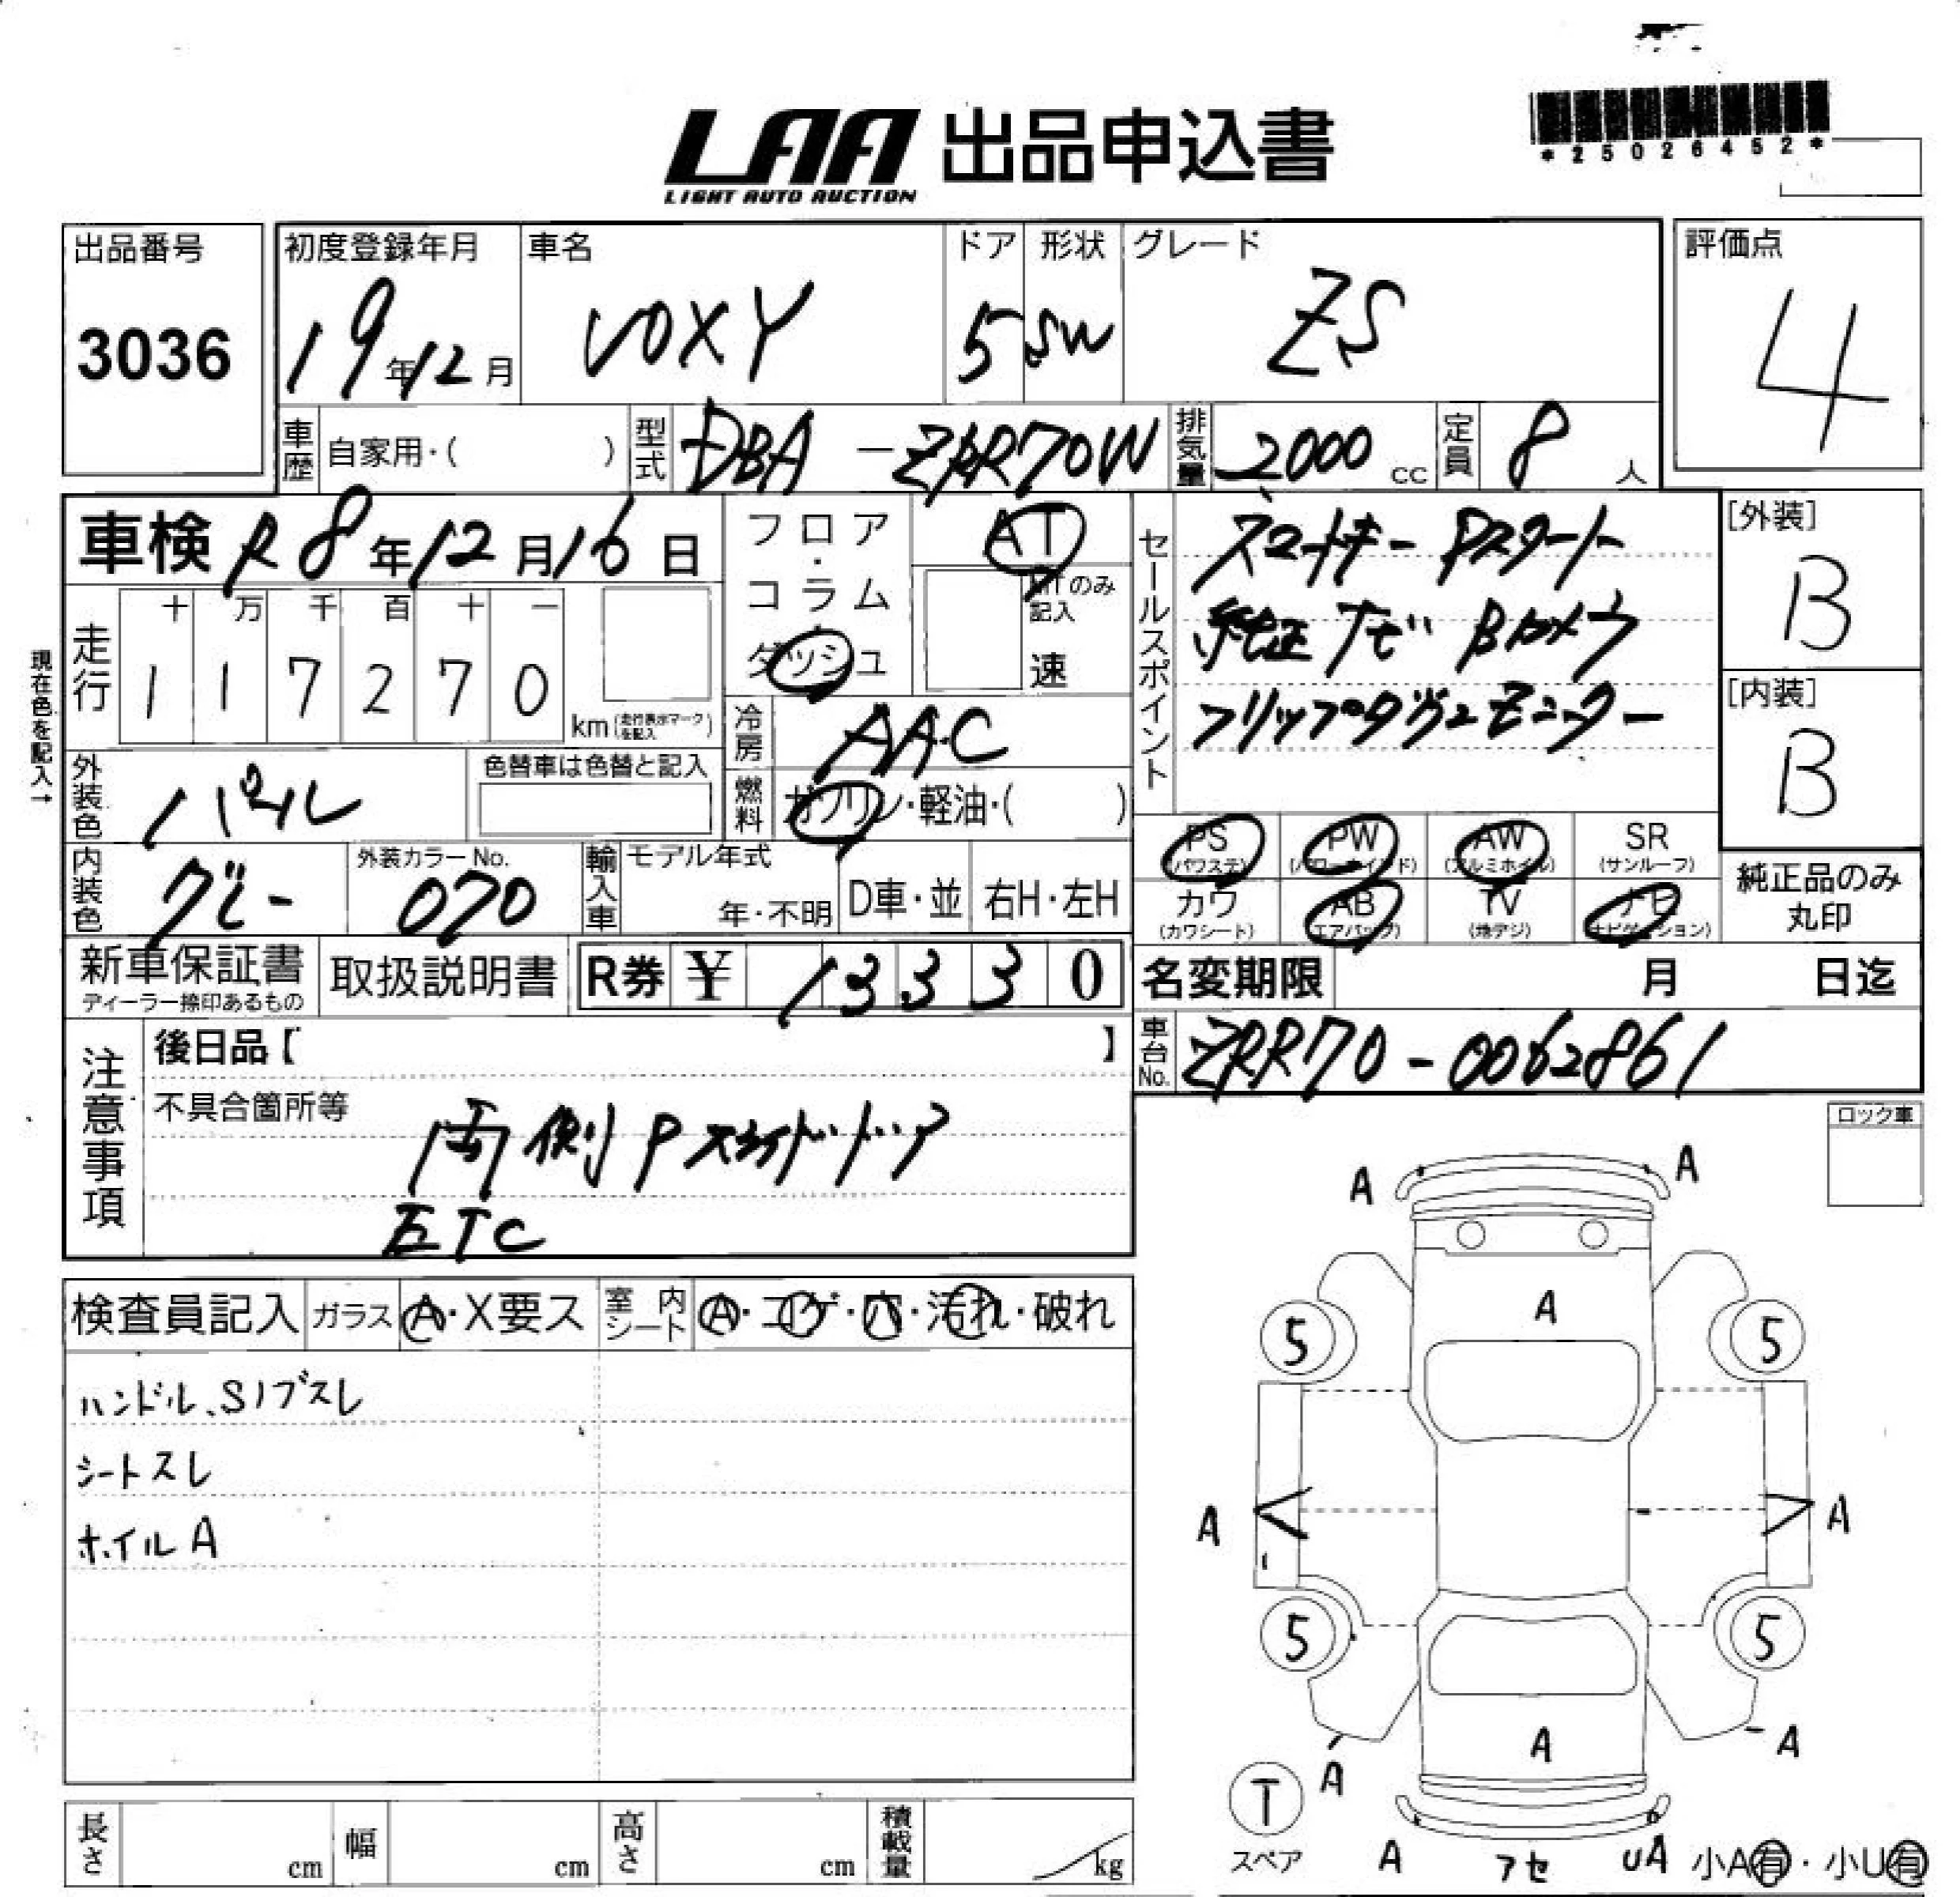 LAA 出品申込書
LIGHT AUTO AUCTION
*25026452*
出品番号
3036
初度登録年月
19年12月
車名
VOXY
ドア
5
形状
SW
グレード
ZS
評価点
4
車歴
自家用・( )
型式
DBA-ZRR70W
排気量
2000cc
定員
8人
車検 R8年12月16日
フロア・コラム・ダッシュ
AT
MTのみ記入
速
セールスポイント
スマートキー Pスタート
純正ナビ Bカメラ
フリップダウンモニター
[外装]
B
[内装]
B
現在色を記入→
走行
十 万 千 百 十 一
1 1 7 2 7 0
km(走行表示マークを記入)
冷房
AAC
外装色
パール
色替車は色替と記入
燃料
ガソリン・軽油・( )
PS
(パワステ)
PW
(パワーウインド)
AW
(アルミホイル)
SR
(サンルーフ)
カワ
(カワシート)
AB
(エアバック)
TV
(地デジ)
ナビ
(ナビゲーション)
純正品のみ
丸印
内装色
グレー
外装カラーNo.
070
輸入車
モデル年式
年・不明
D車・並
右H・左H
新車保証書
ディーラー捺印あるもの
取扱説明書
R券 ¥ 13330
名変期限 月 日迄
車台No.
ZRR70-0062861
注意事項
後日品【 】
不具合箇所等
両側Pスライドドア
ETC
ロック車
検査員記入
ガラス
A・X要ス
室内シート
A・コゲ・穴・汚れ・破れ
ハンドル、Sノブスレ
シートスレ
ホイルA
A A
A
5 5
A A
5 5
A
A A
T
スペア
A アセ UA 小A有・小U有
長さ cm
幅 cm
高さ cm
積載量 kg